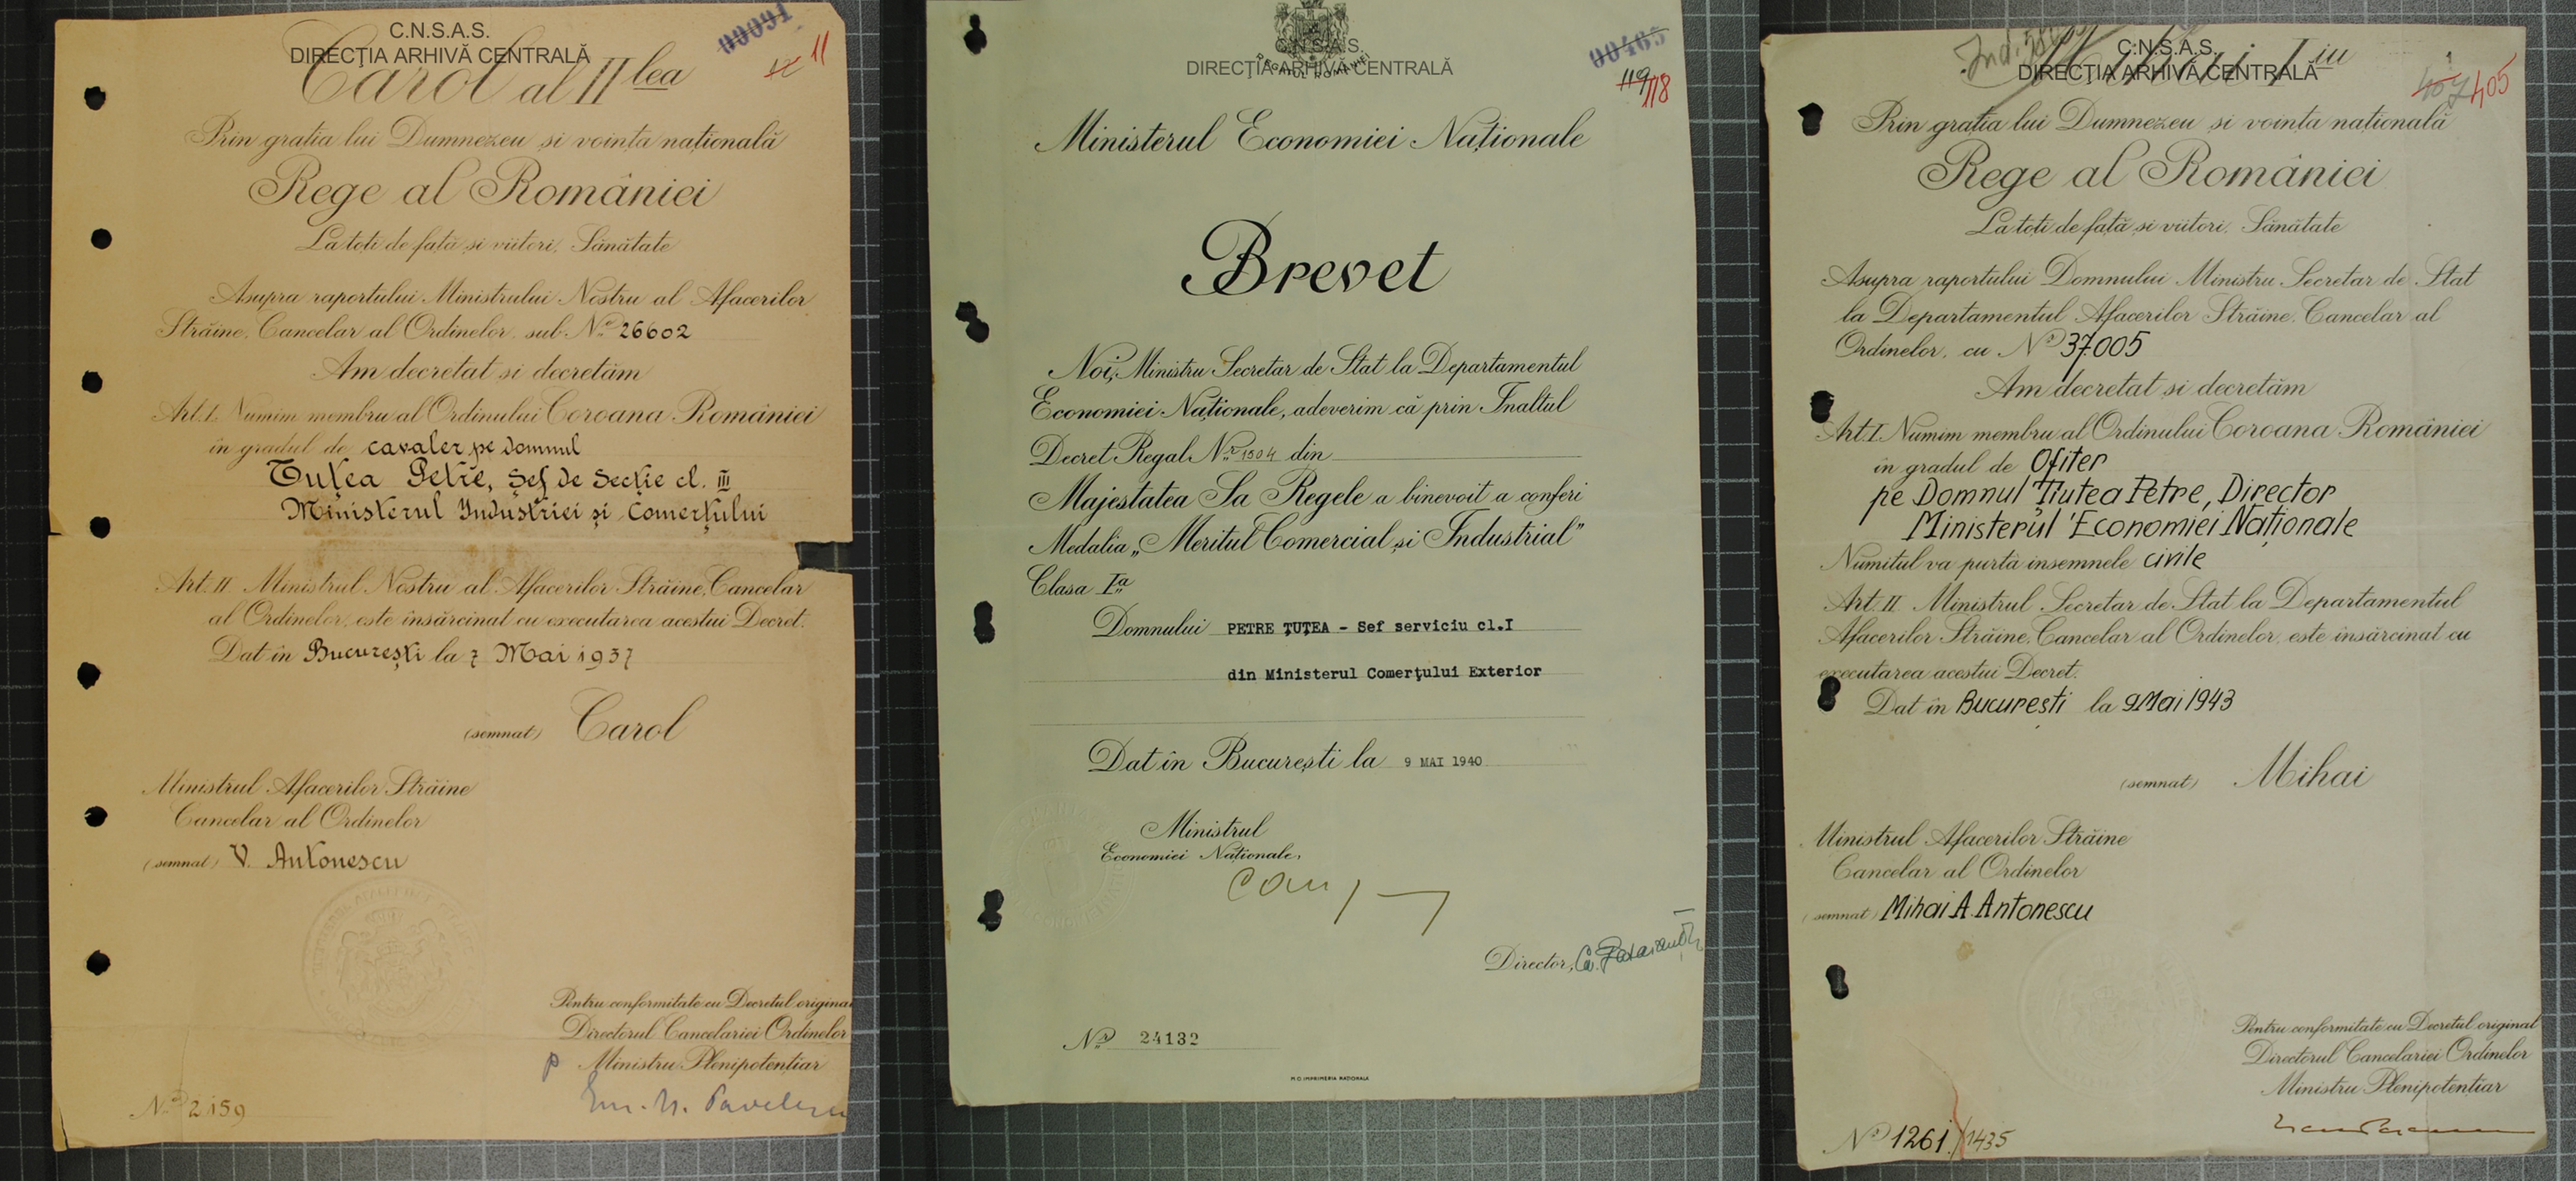 C.N.S.A.S.
DIRECȚIA ARHIVĂ CENTRALĂ
00091
11
Carol al II lea
Prin grația lui Dumnezeu și voința națională
Rege al României
La toți de față și viitori, Sănătate
Asupra raportului Ministrului Nostru al Afacerilor
Străine, Cancelar al Ordinelor, sub No 26602
Am decretat și decretăm
Art. I. Numim membru al Ordinului Coroana României
în gradul de cavaler pe Domnul
Țuțea Petre, Șef de Secție cl. III
Ministerul Industriei și Comerțului
Art. II. Ministrul Nostru al Afacerilor Străine, Cancelar
al Ordinelor, este însărcinat cu executarea acestui Decret.
Dat în București la 7 Mai 1937
(semnat) Carol
Ministrul Afacerilor Străine
Cancelar al Ordinelor
(semnat) V. Antonescu
Pentru conformitate cu Decretul original
Directorul Cancelariei Ordinelor
p Ministru Plenipotențiar
No 2159
C.N.S.A.S.
REGATUL ROMÂNIEI
DIRECȚIA ARHIVĂ CENTRALĂ
00465
119 118
Ministerul Economiei Naționale
Brevet
Noi, Ministru Secretar de Stat la Departamentul
Economiei Naționale, adeverim că prin Înaltul
Decret Regal Nr. 1504 din
Majestatea Sa Regele a binevoit a conferi
Medalia „Meritul Comercial și Industrial”
Clasa Ia
Domnului PETRE ŢUŢEA - Sef serviciu cl.I
din Ministerul Comerţului Exterior
Dat în București la 9 MAI 1940
Ministrul
Economiei Naționale,
Director,
No 24132
M.O. IMPRIMERIA NAȚIONALA
C.N.S.A.S.
DIRECȚIA ARHIVĂ CENTRALĂ
405
Mihai I iu
Prin grația lui Dumnezeu și voința națională
Rege al României
La toți de față și viitori, Sănătate
Asupra raportului Domnului Ministru Secretar de Stat
la Departamentul Afacerilor Străine, Cancelar al
Ordinelor, cu No 37.005
Am decretat și decretăm
Art. I. Numim membru al Ordinului Coroana României
în gradul de Ofițer
pe Domnul Țiuțea Petre, Director
Ministerul Economiei Naționale
Numitul va purta insemnele civile
Art. II. Ministrul Secretar de Stat la Departamentul
Afacerilor Străine, Cancelar al Ordinelor, este însărcinat cu
executarea acestui Decret.
Dat în București la 9 Mai 1943
(semnat) Mihai
Ministrul Afacerilor Străine
Cancelar al Ordinelor
(semnat) Mihai A. Antonescu
Pentru conformitate cu Decretul original
Directorul Cancelariei Ordinelor
Ministru Plenipotențiar
No 1261 / 1435